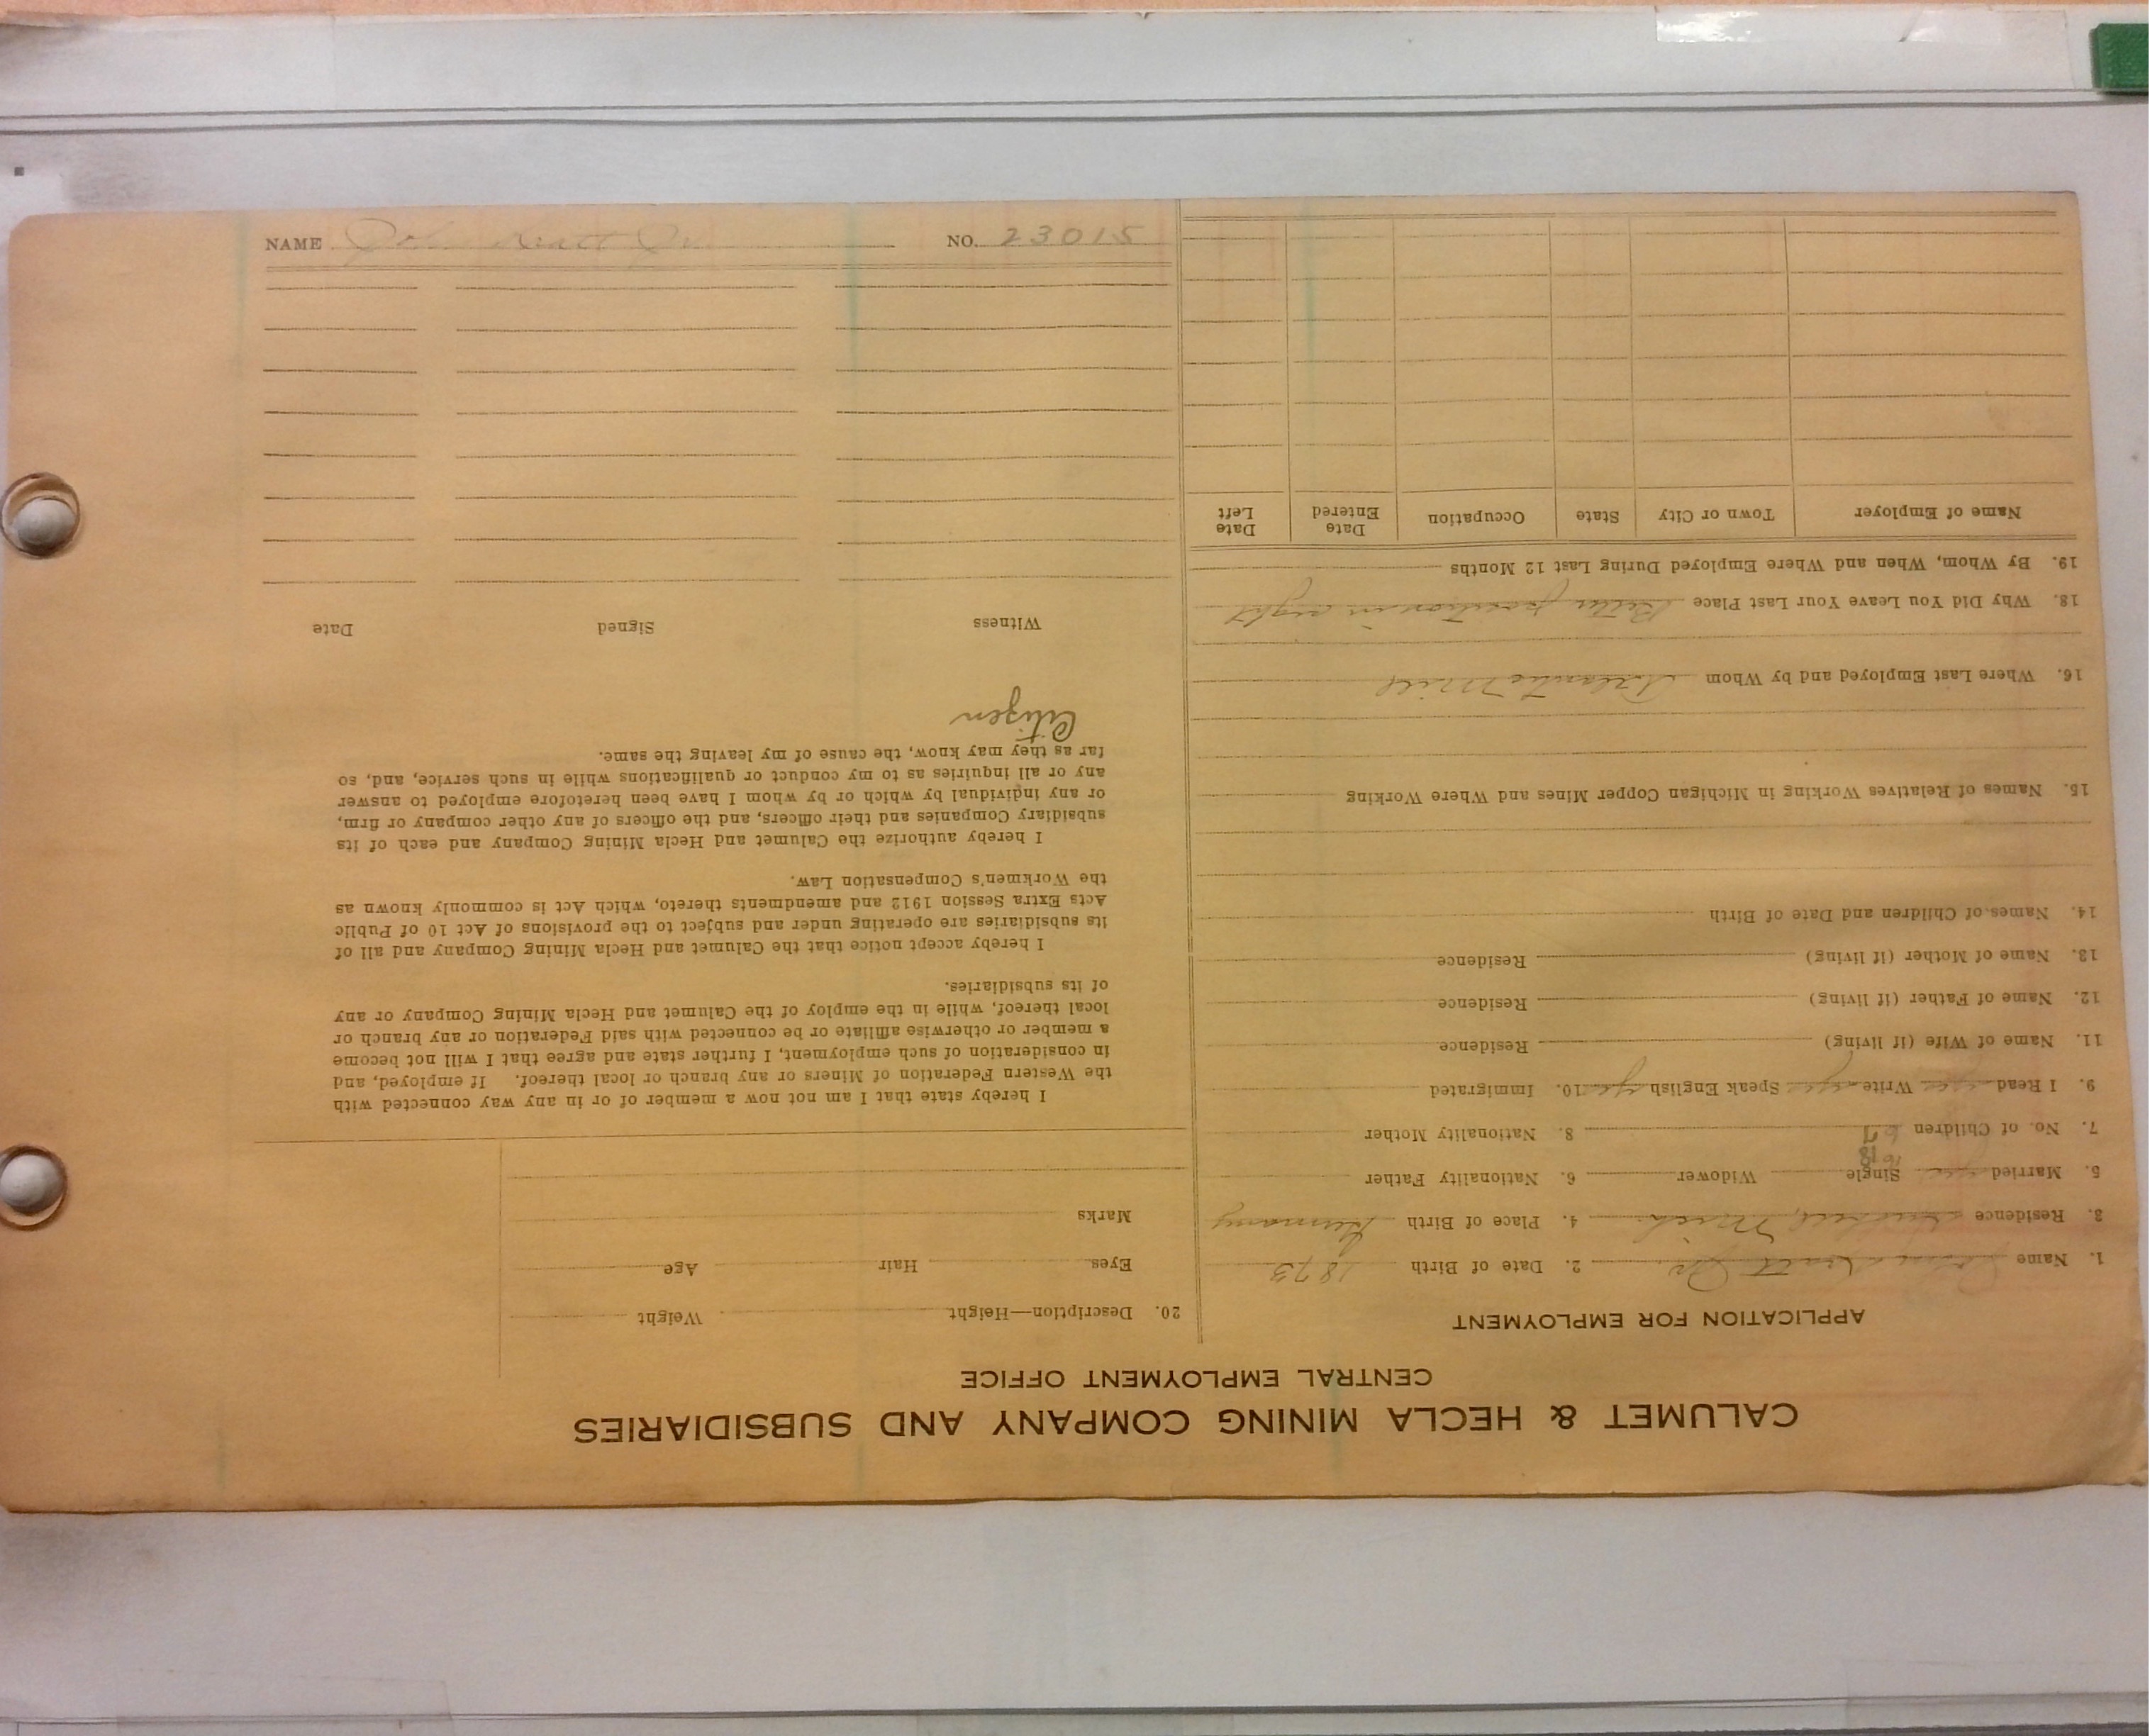 CALUMET & HECLA MINING COMPANY AND SUBSIDIARIES
CENTRAL EMPLOYMENT OFFICE
APPLICATION FOR EMPLOYMENT
1. Name John Jr. 2. Date of Birth 1873
3. Residence Mich. 4. Place of Birth Germany
5. Married yes Single Widower 6. Nationality Father
7. No. of Children 8. Nationality Mother
9. I Read yes Write yes Speak English yes 10. Immigrated
11. Name of Wife (if living) Residence
12. Name of Father (if living) Residence
13. Name of Mother (if living) Residence
14. Names of Children and Date of Birth
15. Names of Relatives Working in Michigan Copper Mines and Where Working
16. Where Last Employed and by Whom Atlantic Mill
18. Why Did You Leave Your Last Place Better position in sight
19. By Whom, When and Where Employed During Last 12 Months
Name of Employer Town or City State Occupation Date Entered Date Left
20. Description—Height Weight
Eyes Hair Age
Marks
I hereby state that I am not now a member of or in any way connected with
the Western Federation of Miners or any branch or local thereof. If employed, and
in consideration of such employment, I further state and agree that I will not become
a member or otherwise affiliate or be connected with said Federation or any branch or
local thereof, while in the employ of the Calumet and Hecla Mining Company or any
of its subsidiaries.
I hereby accept notice that the Calumet and Hecla Mining Company and all of
its subsidiaries are operating under and subject to the provisions of Act 10 of Public
Acts Extra Session 1912 and amendments thereto, which Act is commonly known as
the Workmen's Compensation Law.
I hereby authorize the Calumet and Hecla Mining Company and each of its
subsidiary Companies and their officers, and the officers of any other company or firm,
or any individual by which or by whom I have been heretofore employed to answer
any or all inquiries as to my conduct or qualifications while in such service, and, so
far as they may know, the cause of my leaving the same.
Citizen
Witness Signed Date
NAME John Jr. NO. 23015